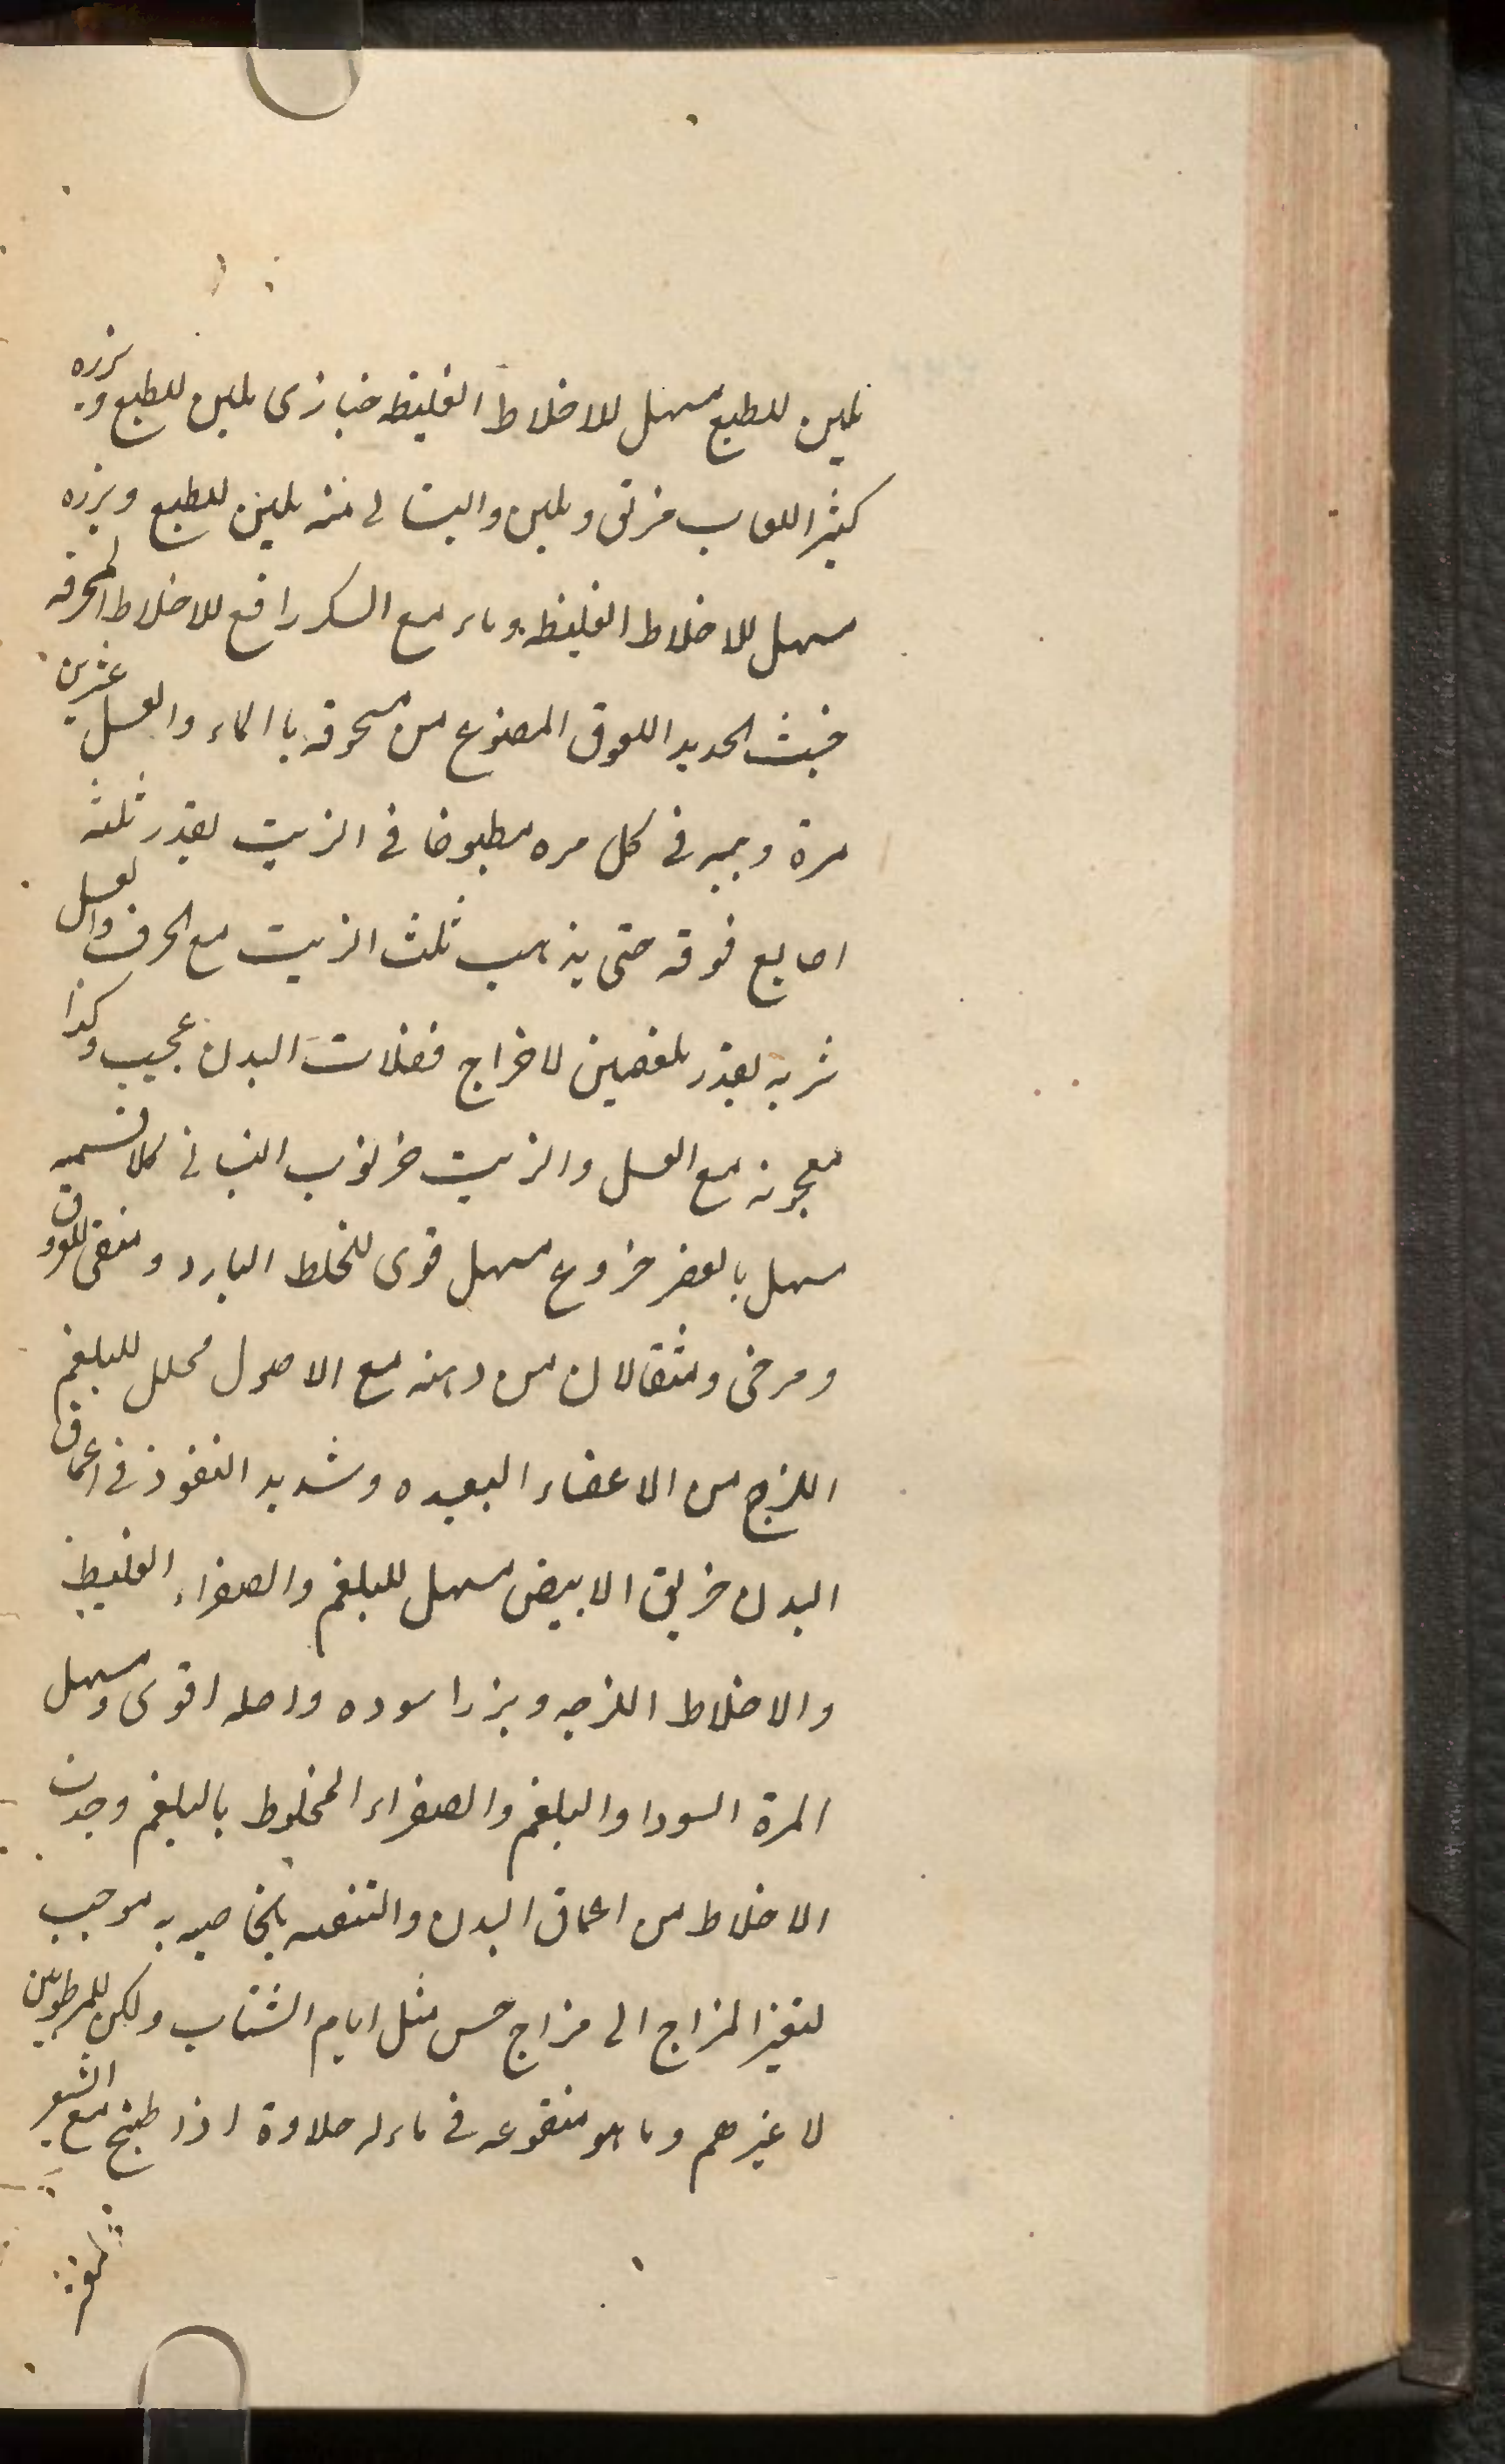 ملين للطبع مسهل للاخلاط الغليظه خبازى ملين للطبع وبزره
كثير اللعاب مزلق وملين والبستانى منه ملين للطبع وبزره
مسهل للاخلاط الغليظه وماء مع السكر رافع للاخلاط المحرقه
خبث الحديد اللعوق المصنوع من مسحوقه باالماء والعسل عشرين
مرة وبجير فى كل مره مطبوخا فى الزيت بقدر ثلثه
اصابع فوقه حتى يذهب ثلث الزيت مع الحرف والعسل
شربه بقدر ملعقتين لاخراج فضلات البدن عجيب وكذا
معجونه مع العسل والزيت خرنوب النباتى كلا قسميه
مسهل بالعصر خروع مسهل قوى للخلط البارد ومنقى للعروق
ومرخى ومثقالان من دهنه مع الاصول محلل للبلغم
اللزج من الاعضاء البعيده وشديد النفوذ فى اعماق
البدن خربق الابيض مسهل للبلغم والصفراء الغليظ
والاخلاط اللزجه وبزر اسوده واصله اقوى ومسهل
المرة السودا والبلغم والصفراء المخلوط بالبلغم وجذب
الاخلاط من اعماق البدن والتنقيه بالخاصيه به موجب
لتغيير المزاج الى مزاج حسن مثل ايام الشباب ولكن للمرطوبين
لا غيرهم وماهو منقوعه فى ماء له حلاوة اذا طبخ مع الشعير